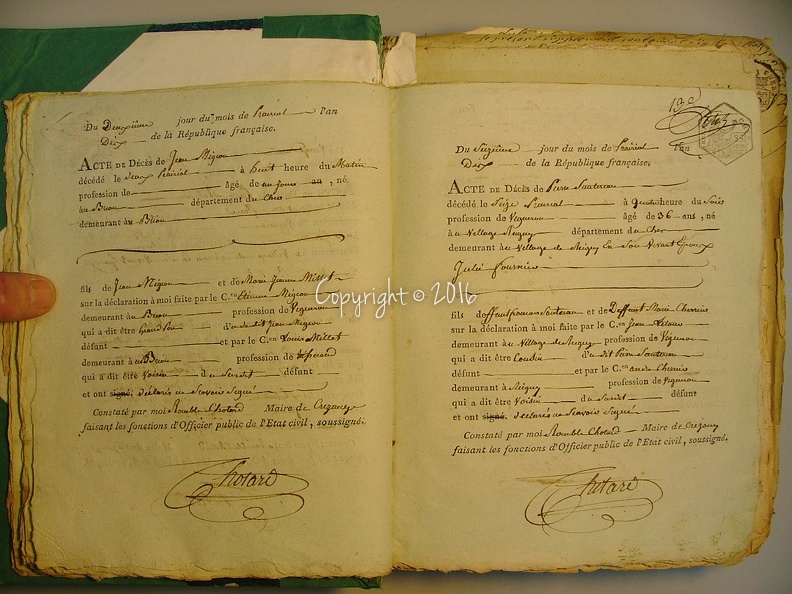 Du Deuxième jour du mois de Prairial l'an
Dix de la République française.
ACTE DE DÉCÈS de Jean Migeon
décédé le deux Prairial à huit heure du Matin
profession de âgé de un jour an, né
au Briou département du Cher
demeurant au Briou
fils de Jean Migeon et de Marie Jeanne Millet
sur la déclaration à moi faite par le C.en Etienne Migeon
demeurant au Briou profession de Vigneron
qui a dit être Grand Père d'u dit Jean Migeon
défunt et par le C.en Louis Millet
demeurant à Briou profession de
qui a dit être Voisin du Susdit défunt
et ont signé. déclarés ne Scavoir Signé
Constaté par moi Romble Chotard Maire de Crezancy
faisant les fonctions d'Officier public de l'Etat civil, soussigné.
Chotard
13e
Du Seizième jour du mois de Prairial l'an
Dix de la République française.
ACTE DE DÉCÈS de Pierre
décédé le Seize Prairial à heure du Soir
profession de Vigneron âgé de 36 ans, né
au Village département du Cher
demeurant au Village de En Son Vivant Epoux
Julie Fournier
fils de et de Deffunt Marie Cherrier
sur la déclaration à moi faite par le C.en Jean
demeurant au Village de profession de Vigneron
qui a dit être Cousin d'u dit Pierre
défunt et par le C.en Cherrier
demeurant à profession de Vigneron
qui a dit être Voisin du Susdit défunt
et ont signé. déclarés ne Scavoir Signé
Constaté par moi Romble Chotard Maire de Crezancy
faisant les fonctions d'Officier public de l'Etat civil, soussigné.
Chotard
Copyright © 2016